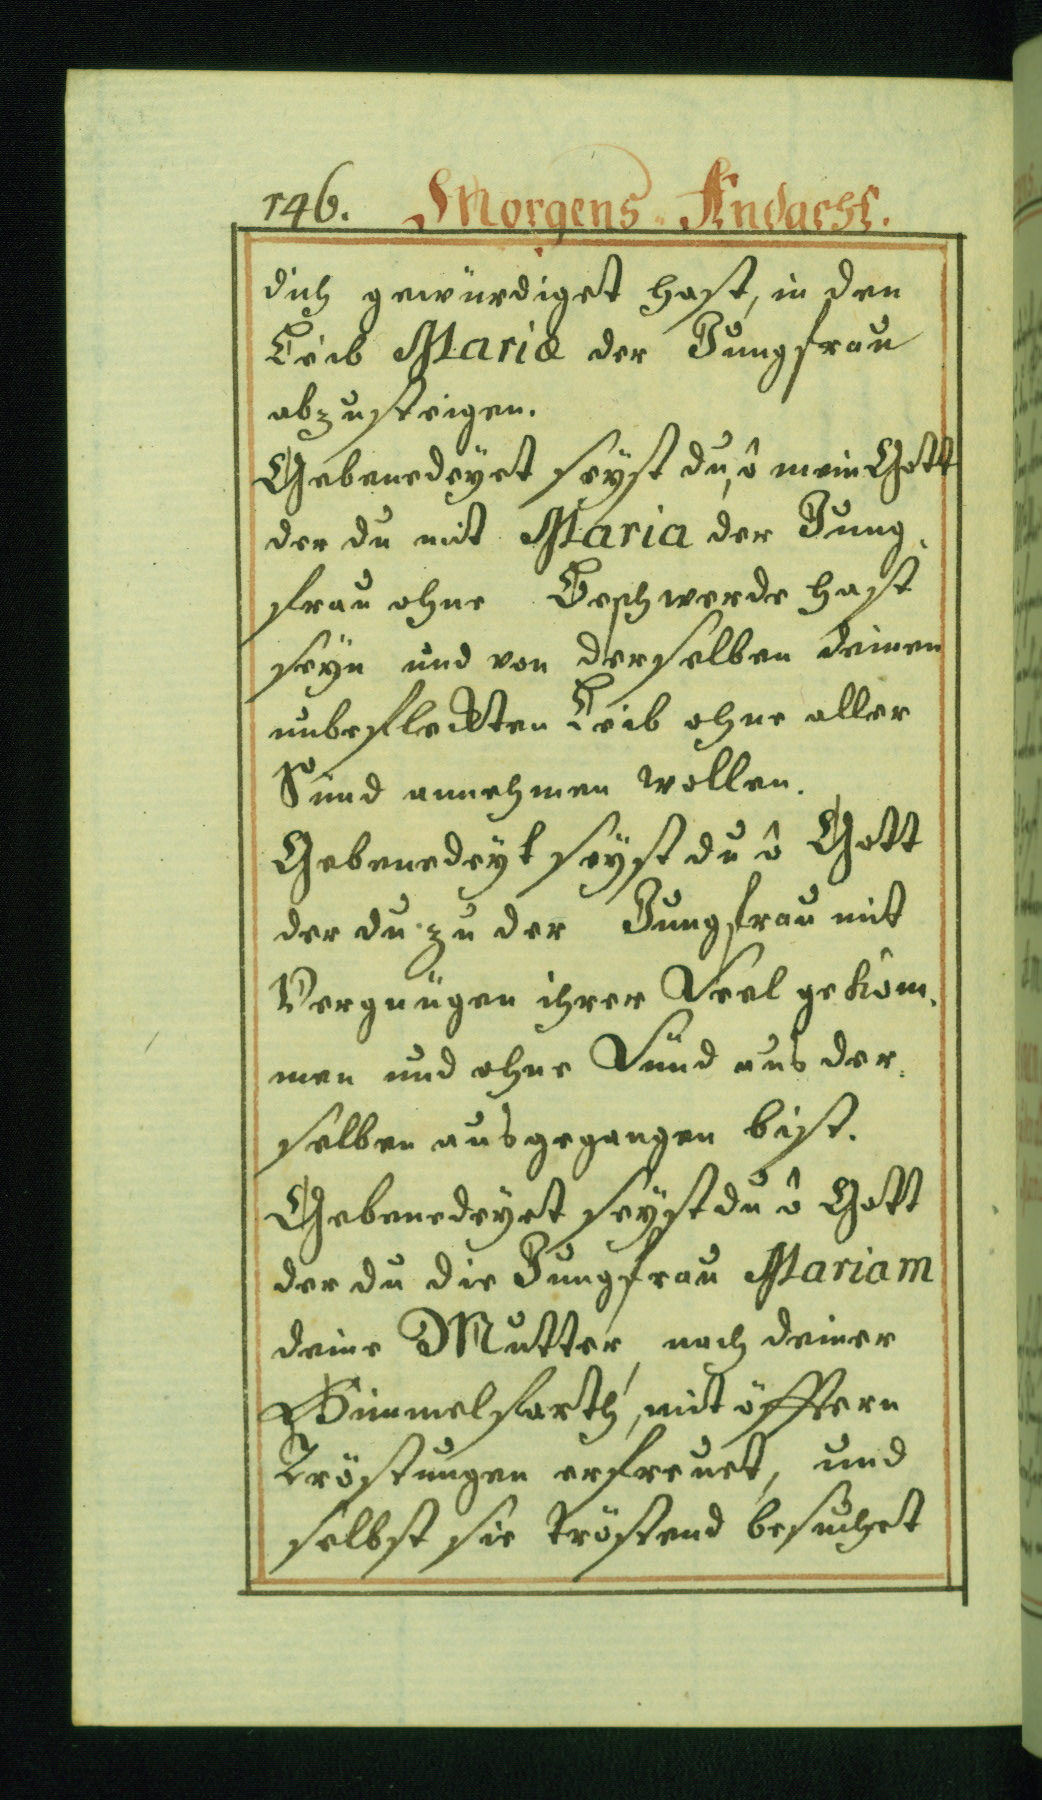 146. Morgens-Andacht.
dich gewürdiget hast, in den
Leib Mariæ der Jungfrau
abzusteigen.
Gebenedeyet seyst du, ô mein Gott
der du mit Maria der Jung-
frau ohne Beschwerde hast
seyn und von derselben deinen
unbefleckten Leib ohne aller
Sünd annehmen wollen.
Gebenedeyt seyst du ô Gott
der du zu der Jungfrau mit
Vergnügen ihrer Seel gekom-
men und ohne Sünd aus der-
selben ausgegangen bist.
Gebenedeyet seyst du ô Gott
der du die Jungfrau Mariam
deine Mutter, nach deiner
Himmelfarth, mit öfftern
Tröstungen erfreuet, und
selbst sie tröstend besuchet